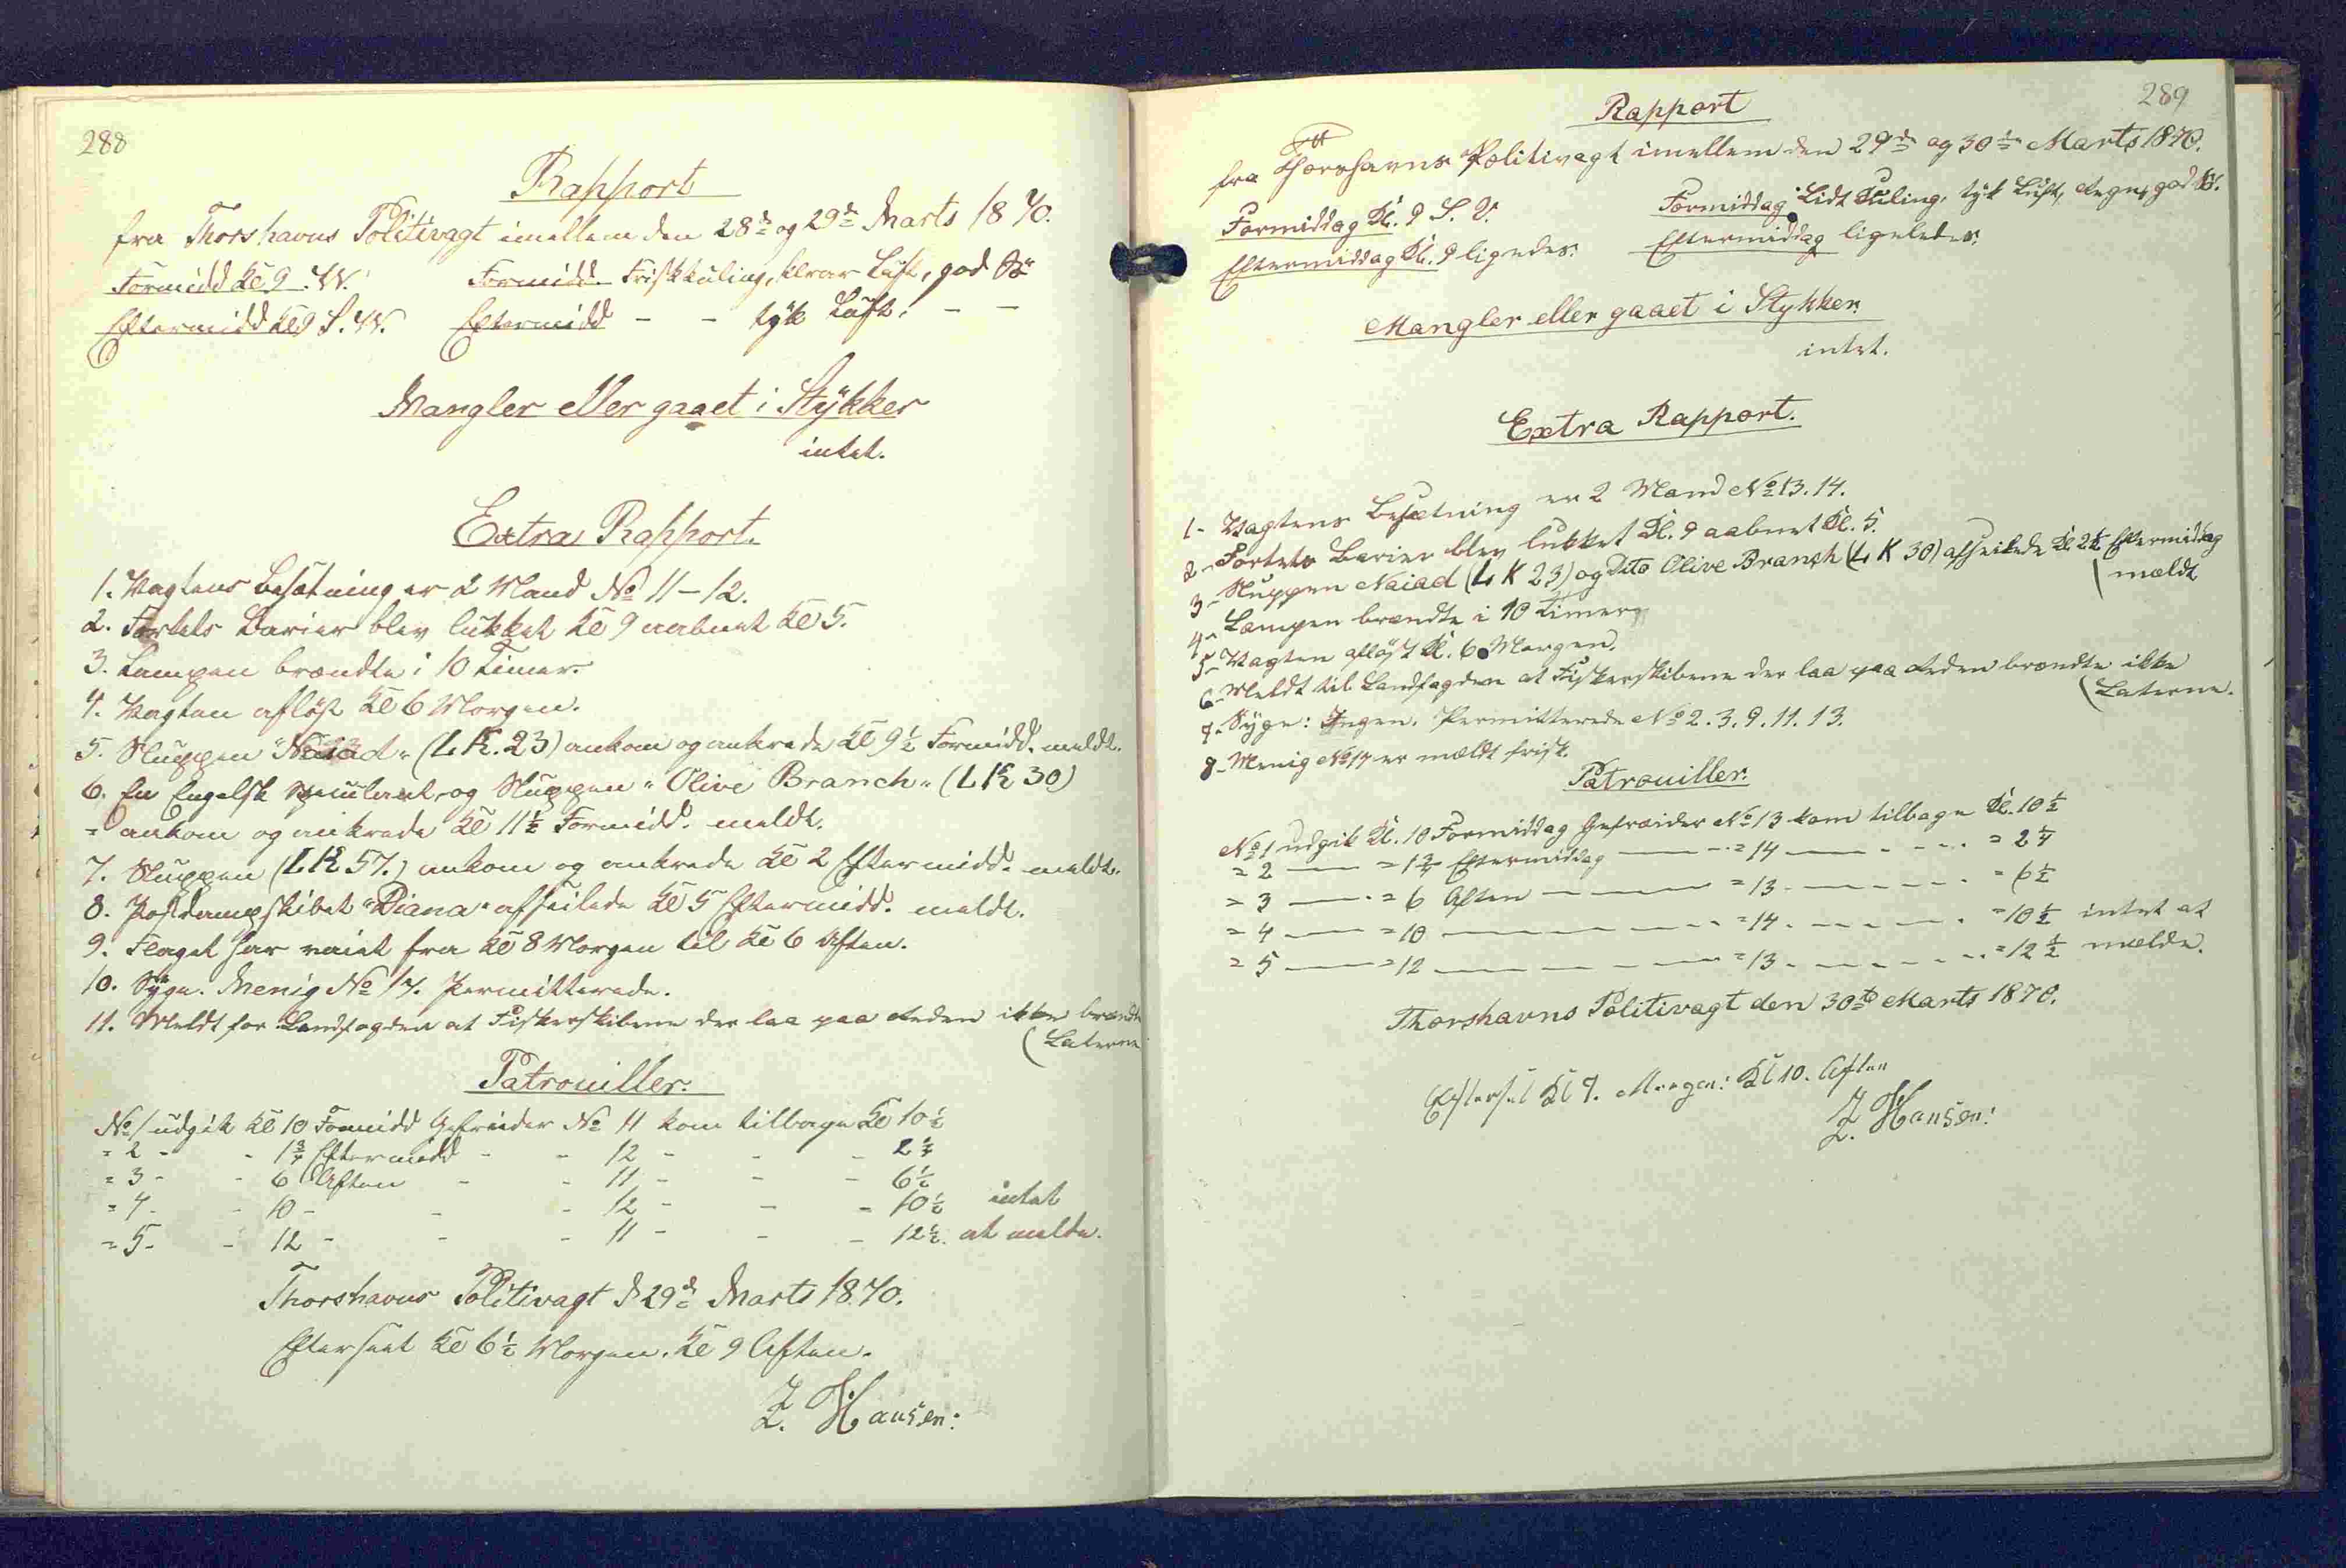 288
Rapport
fra Thorshavns Politivagt imellem den 28de og 29de Marts 1870.
Formidd Kl 9 W. Formidd. Friskkuling, klar Luft, god Sö
Eftermidd Kl 9 S.W. Eftermidd - - tyk Luft. - -
Mangler eller gaaet i Stykker
intet.
Extra Rapport.
1. Vagtens Besætning er 2 Mand No 11-12.
2. Fortets Barier blev lukket Kl 9 aabnet Kl 5.
3. Lampen brændte i 10 Timer.
4. Vagten aflöst Kl 6 Morgen.
5. Sluppen "Naiad" (LK. 23) ankom og ankrede Kl 9½ Formidd. meldt.
6. En Engelsk og Sluppen "Olive Branch" (LK 30)
= ankom og ankrede Kl 11½ Formidd. meldt.
7. Sluppen (LK 57.) ankom og ankrede Kl 2 Eftermidd. meldt.
8. Postdampskibet "Diana" afseilede Kl 5 Eftermidd. meldt.
9. Flaget har vaiet fra Kl 8 Morgen til Kl 6 Aften.
10. Syge. Menig No 17. Permitterede.
11. Meldt for Landfogden at Fiskerskibene der laa paa Reden ikke brændte
(Laterne
Patrouiller.
No 1 udgik Kl 10 Formidd Gefreider No 11 kom tilbage Kl 10½
= 2 - - 1¾ Eftermidd - - 12 - - - 2¼
= 3 - - 6 Aften - - 11 - - - 6½
= 4 - - 10 - - - 12 - - - 10½ intet
= 5 - - 12 - - - 11 - - - 12½ at melde.
Thorshavns Politivagt d 29de Marts 1870.
Efterseet Kl 6½ Morgen. Kl 9 Aften.
Z. Hansen:
289
Rapport
fra Thorshavns Politivagt imellem den 29de og 30te Marts 1870.
Formiddag Kl. 9 S. V. Formiddag Lidt Kuling, tyk Luft, Regn, god Sö.
Eftermiddag Kl. 9 ligedes. Eftermiddag ligeledes.
Mangler eller gaaet i Stykker.
intet.
Extra Rapport.
1- Vagtens Besætning er 2 Mand No 13. 14.
2- Fortets Barier blev lukket Kl. 9 aabnet Kl. 5.
3- Sluppen Naiad (LK 23) og Dito Olive Branch (LK 30) afseilede Kl 2½ Eftermiddag
(mældt
4- Lampen brændte i 10 Timer
5- Vagten aflöst Kl. 6 Morgen.
6- Meldt til Landfogden at Fiskerskibene der laa paa Reden brændte ikke
(Laterne.
7- Syge: Ingen. Permitterede No 2. 3. 9. 11. 13.
8- Menig No 17 er mældt frisk.
Patrouiller.
No 1 udgik Kl. 10 Formiddag Gefreider No 13 kom tilbage Kl. 10½
= 2 — = 1¾ Eftermiddag — = 14 — - - - = 2¼
= 3 — = 6 Aften — = 13 - — - - - = 6½
= 4 — = 10 — - - = 14 - - - — - = 10½ intet at
= 5 — = 12 — - — = 13 - — - - - = 12½ mælde.
Thorshavns Politivagt den 30te Marts 1870.
Efterset Kl 7. Morgen: Kl 10. Aften
Z. Hansen: